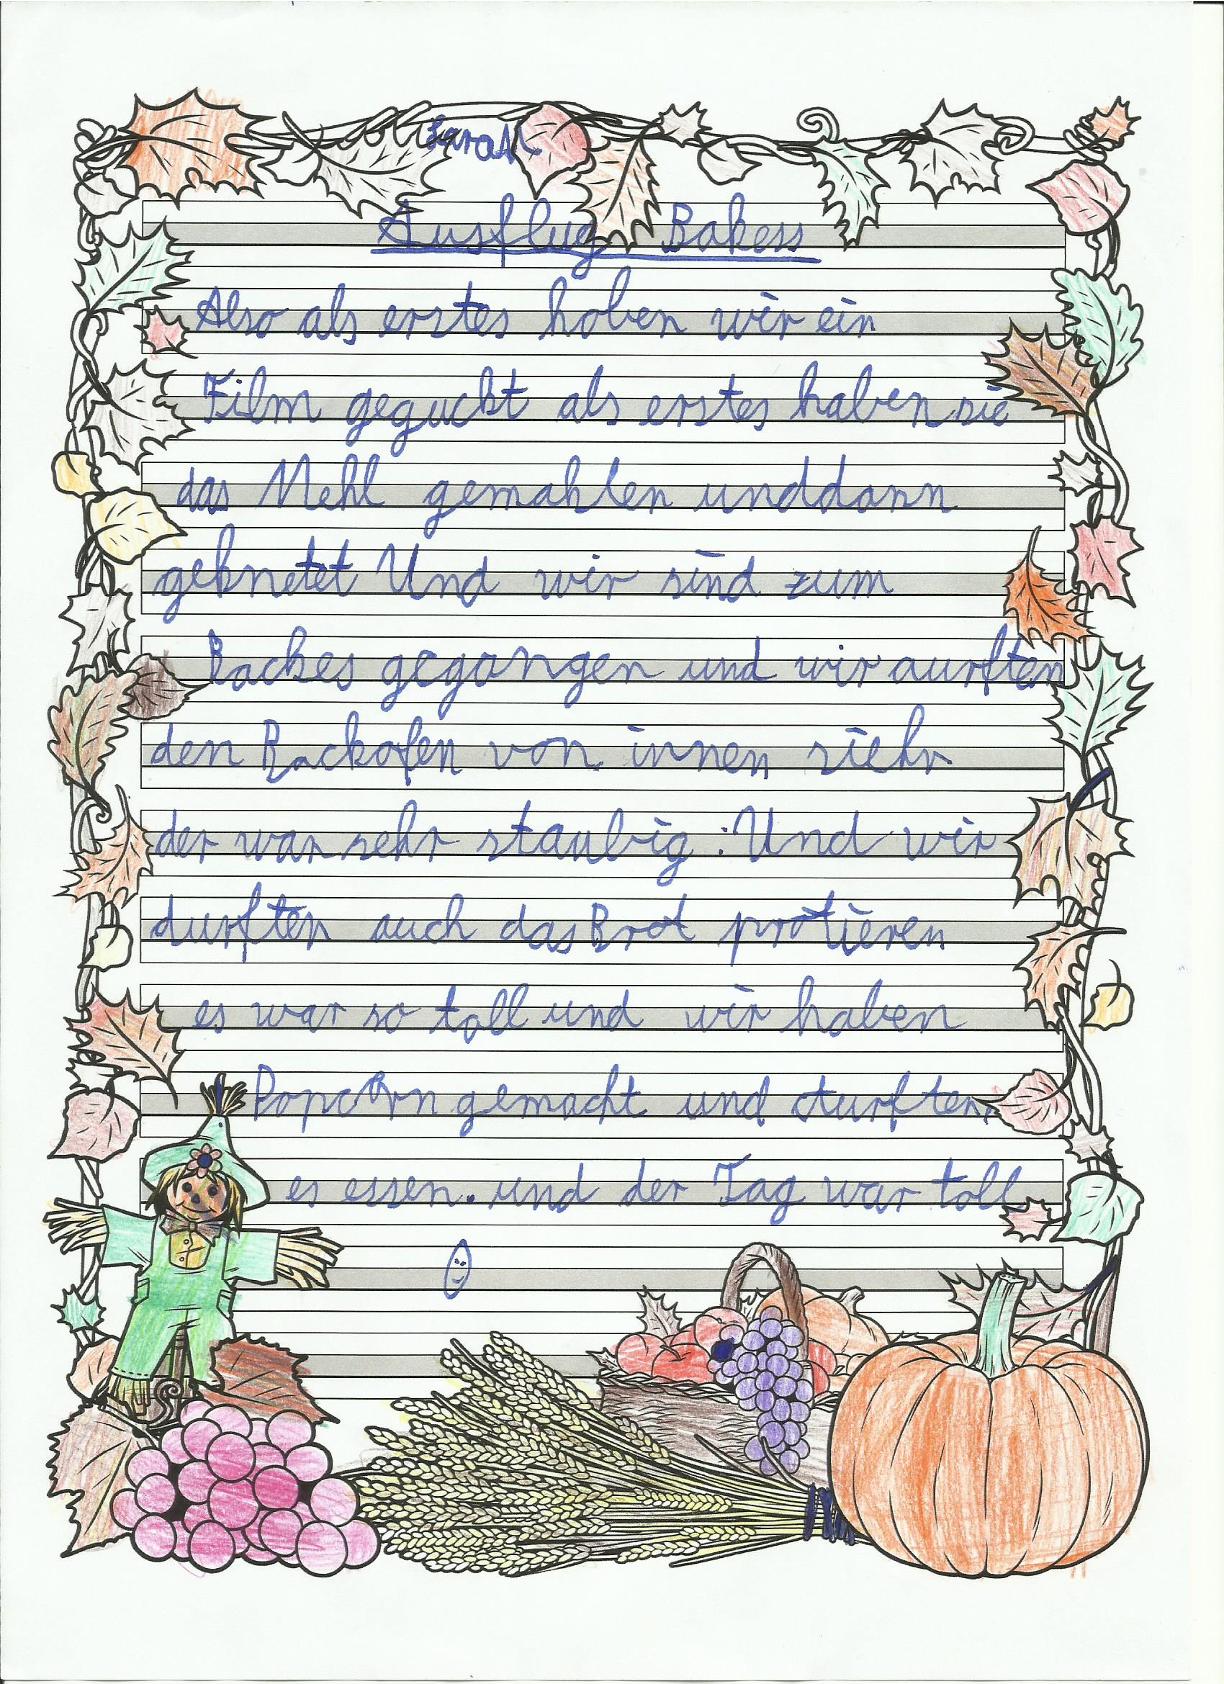 Sara M
Ausflug Bakess
Also als erstes haben wir ein
Film geguckt als erstes haben sie
das Mehl gemahlen unddann
geknetet Und wir sind zum
Backes gegangen und wir durften
den Backofen von innen siehr
der war sehr staubig. Und wir
durften auch das Brot protieren
es war so toll und wir haben
Popcorn gemacht und durften
es essen. und der Tag war toll